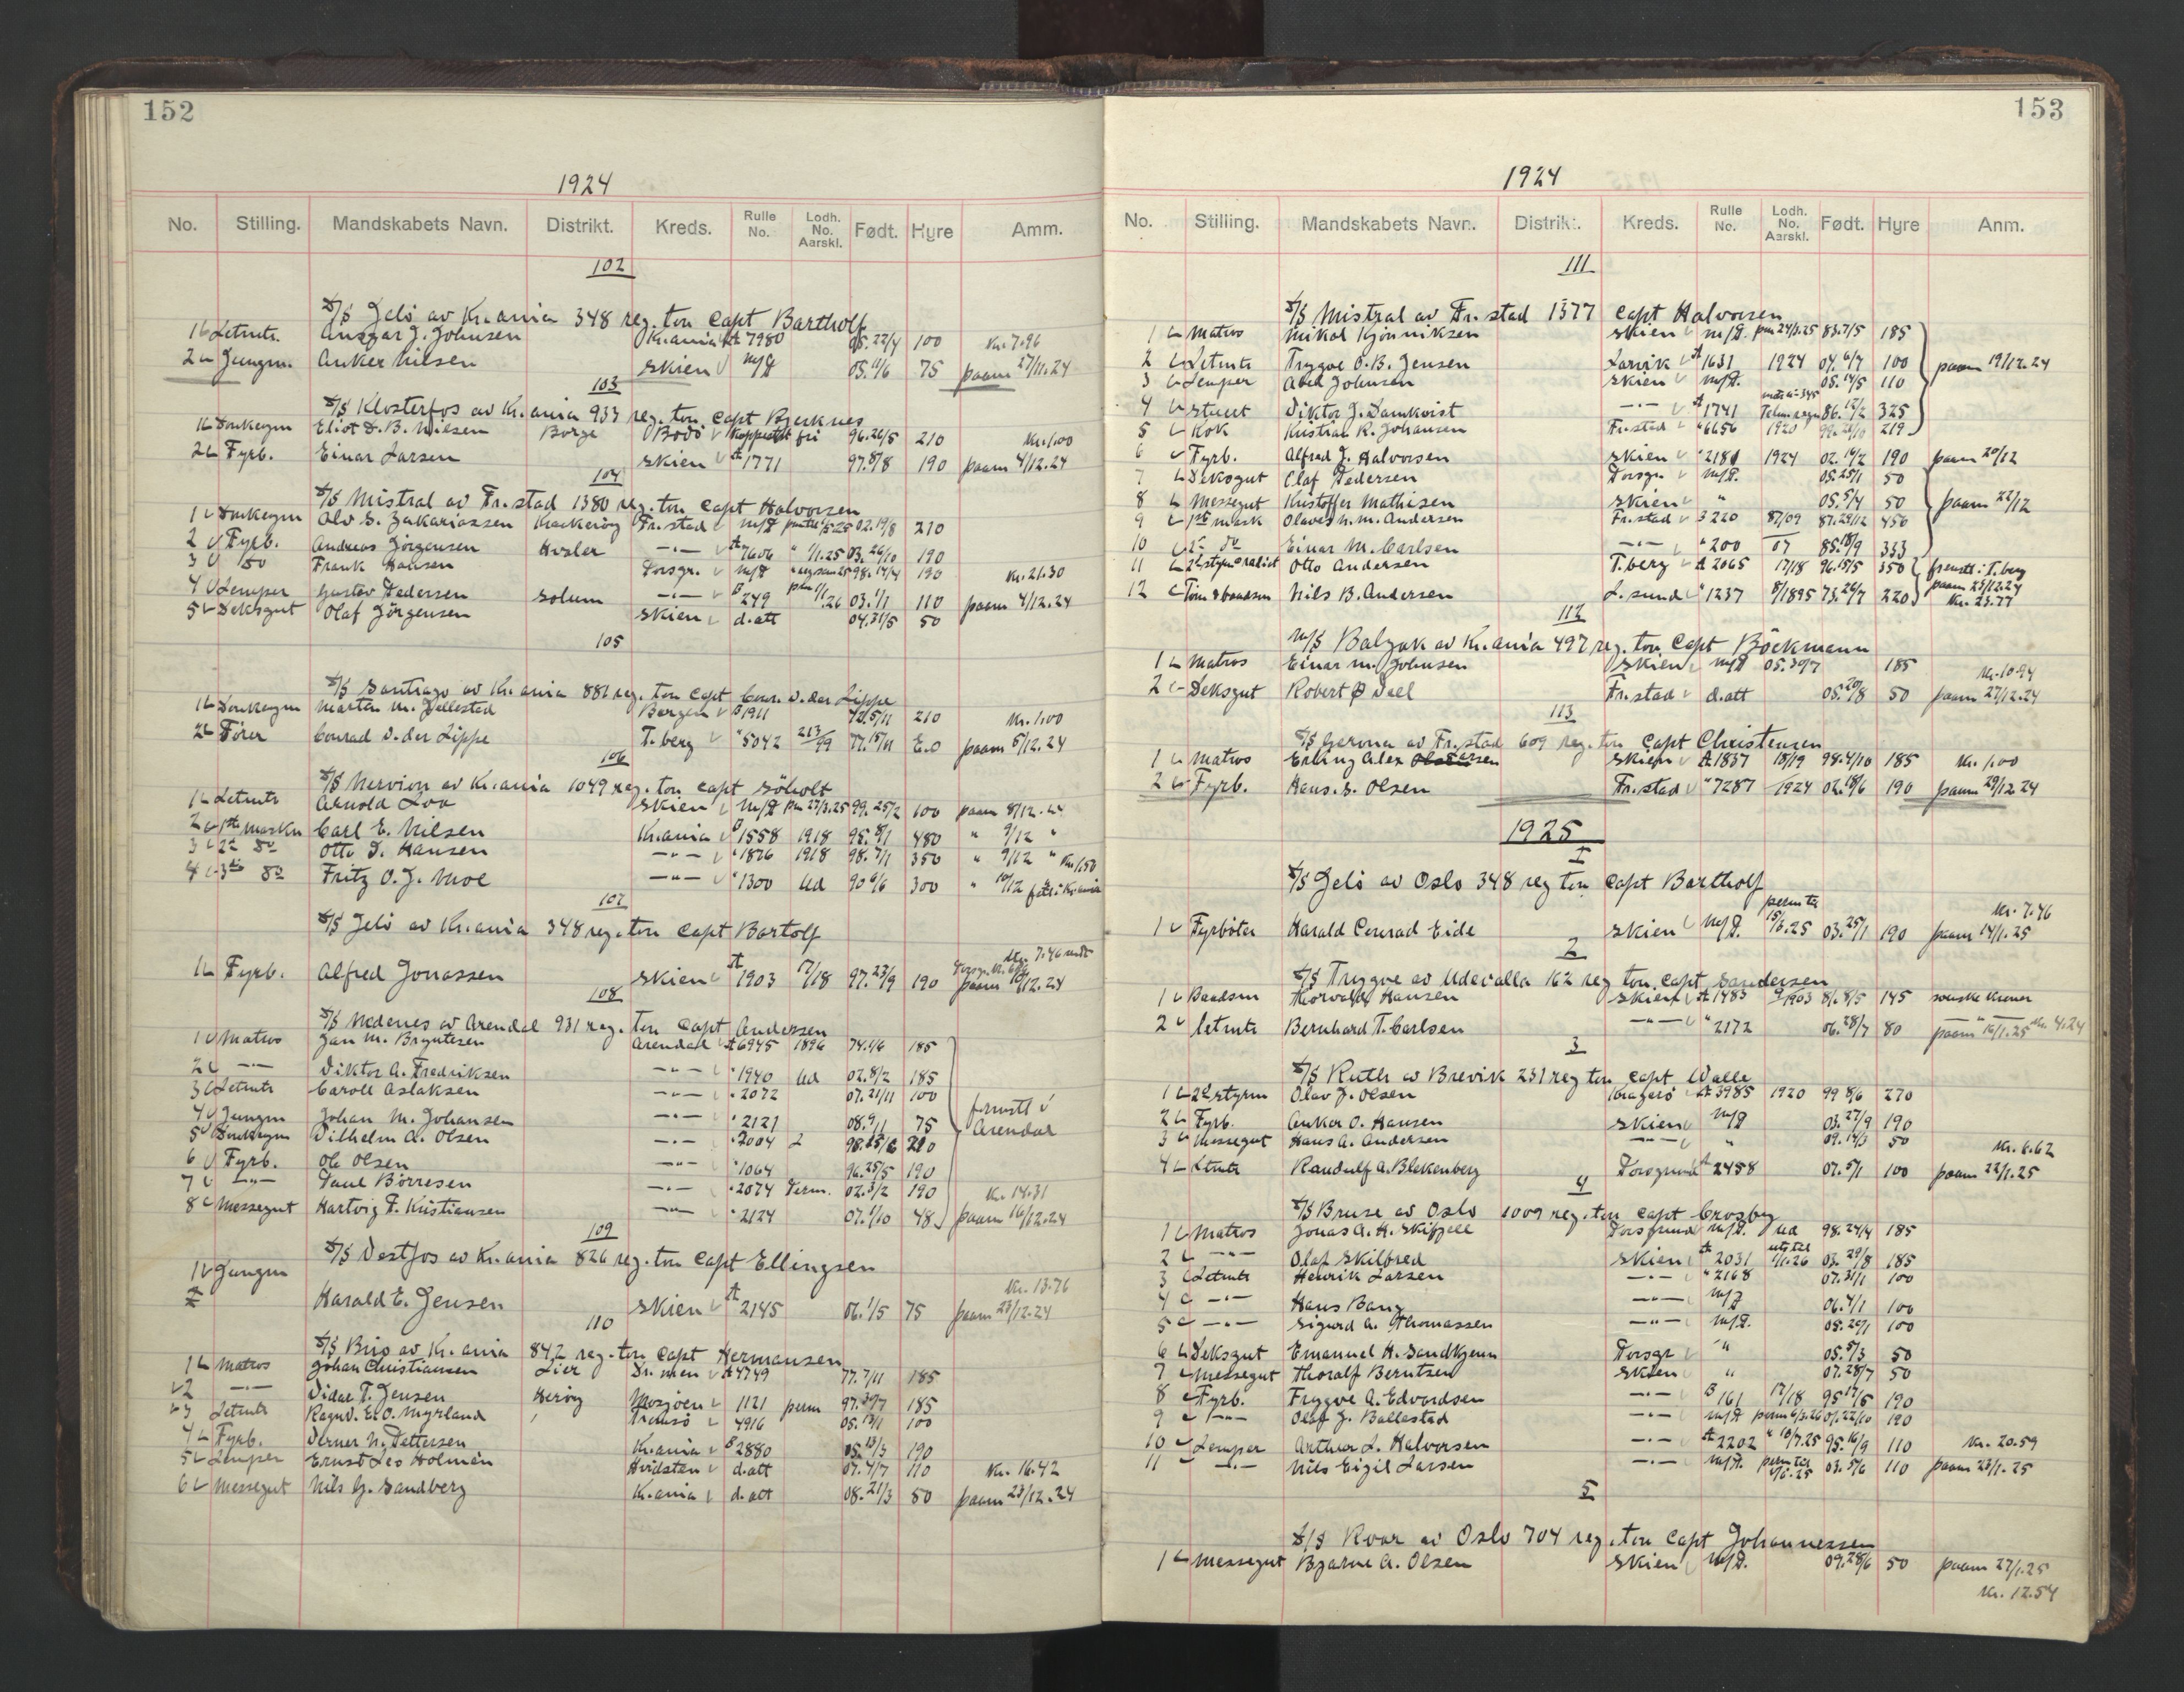 152
1924
No. Stilling. Mandskabets Navn. Distrikt. Kreds. Rulle No. Lodh. No. Aarskl. Født. Hyre Amm.
102
S/S Jelö av Kr.ania 348 reg. ton Capt Bartholf
1 Letmtr. Ansgar J. Johnsen Kr.ania A 7980 05.22/4 100 Kr. 7.96
2 Jungm. Anker Nilsen Skien m/P 05.11/6 75 paam 27/11.24
103
S/S Klosterfos av Kr.ania 933 reg. ton Capt Bjerknes
1 Donkeym Eliot D. B. Nilsen Borge Bodö fri 96.26/5 210 Kr. 1.00
2 Fyrb. Einar Larsen Skien A 1771 97.8/8 190 paam 4/12.24
104
S/S Mistral av Fr.stad 1380 reg. ton Capt Halvorsen
1 Donkeym Olv S. Zakariassen Kraakeröy Fr.stad 02.19/8 210
2 Fyrb. Andreas Jörgensen Hvaler —"— A 7606 " 1/1.25 03.26/10 190
3 do Frank Hansen Porsgr. 98.14/4 190 Kr. 21.30
4 Lemper Gustav Pedersen Solum —"— B 249 1/1.26 03.1/1 110 paam 4/12.24
5 Deksgut Olaf Jörgensen Skien d.att 04.31/5 50
105
S/S Santiago av Kr.ania 881 reg. ton Capt Conr. v. der Lippe
1 Donkeym Marten M. Jellestad Bergen B 1911 72.5/11 210 Kr. 1.00
2 Förer Conrad v. der Lippe T.berg " 5042 213/99 77.15/11 E.O paam 5/12.24
106
S/S Nervion av Kr.ania 1049 reg. ton Capt Söholt
1 Letmtr Arnold Lov Skien 27/3.25 99.25/2 100 paam 8/12.24
2 1ste Maskn Carl E. Nilsen Kr.ania B 1558 1918 95.8/1 480 " 9/12 "
3 2n do Otto D. Hansen —"— " 1876 1918 98.7/1 350 " 9/12 " Kr. 1.50
4 3die do Fritz O. J. Moe —"— " 1300 Ud 90 6/6 300 " 10/12
107
S/S Jelö av Kr.ania 348 reg. ton Capt Bartolf
1 Fyrb. Alfred Jonassen Skien A 1903 17/18 97.23/9 190 paam 10/12.24
108
S/S Nedenes av Arendal 931 reg. ton Capt Andersen
1 Matros Jan M. Bryntesen Arendal A 6945 1896 74.1/6 185
2 —"— Viktor A. Fredriksen —"— " 1940 Ud 02.8/2 185
3 Letmtr Caroll Aslaksen —"— " 2072 07.21/11 100
4 Jungm Johan M. Johansen —"— " 2121 08.9/11 75 fremstl i
5 Donkeym Vilhelm A. Olsen —"— " 2004 2 98.25/6 210 Arendal
6 Fyrb. Ole Olsen —"— " 1064 96.25/5 190
7 —"— Paul Börresen —"— " 2074 Perm. 02.3/2 190 Kr. 14.31
8 Messegut Hartvig F. Kristiansen —"— " 2124 07.1/10 48 paam 16/12.24
109
S/S Vestfos av Kr.ania 826 reg. ton Capt Ellingsen
1 Jungm Harald E. Jensen Skien A 2145 06.1/5 75 Kr. 13.76 paam 23/12.24
110
S/S Brio av Kr.ania 842 reg. ton Capt Hermansen
1 Matros Johan Christiansen Lier Dr.men A 4749 77.7/11 185
2 —"— Vidar T. Jensen Heröy Mosjöen 1121 perm 97.30/7 185
3 Letmtr Ragnv. E. O. Myrland Tromsö 4916 05.13/1 100
4 Fyrb. Verner N. Pettersen Kr.ania B 2880 05.13/3 190
5 Lemper Ernst Leo Holmén Hvidsten d.att 07.4/7 110 Kr. 16.42
6 Messegut Nils G. Sandberg Kr.ania d.att 08.21/3 50 paam 23/12.24
153
1924
No. Stilling. Mandskabets Navn. Distrikt. Kreds. Rulle No. Lodh. No. Aarskl. Født. Hyre Anm.
111
S/S Mistral av Fr.stad 1377 Capt Halvorsen
1 Matros Mikal Kjönniksen Skien m/P. 24/3.25 83.7/5 185
2 Letmtr Trygve O. B. Jensen Larvik A 1631 1924 04.6/7 100 paam 19/12.24
3 Lemper Abel Johnsen Skien m/P. 05.14/5 110
4 Stuert Viktor J. Damkvist —"— A 1741 86.12/2 325
5 Kok Kristian R. Johansen Fr.stad " 6656 1920 99.20/10 219
6 Fyrb. Alfred J. Halvorsen Skien " 2181 1924 02.14/2 190 paam 20/12
7 Deksgut Olaf Pedersen Porsgr. m/P. 05.25/1 50
8 Messegut Kristoffer Mathisen Skien " 05.5/4 50 paam 22/12
9 1ste Mask Olaves N. M. Andersen Fr.stad B 220 87/09 87.29/12 450
10 2n do Einar M. Carlsen —"— " 200 07 85.18/9 333
11 Otto Andersen T.berg A 2065 17/18 96.15/5 350 fremstl i T.berg
12 Töm & baadsm Nils B. Andersen L.sund " 1237 8/1895 73.26/7 220 paam 23/12.24 Kr. 23.77
112
M/S Balzak av Kr.ania 497 reg. ton Capt Böckmann
1 Matros Einar M. Johnsen Skien m/P 05.30/7 185 Kr. 10.94
2 Deksgut Robert Ø Dael Fr.stad d.att 05.20/8 50 paam 27/12.24
113
S/S Gerona av Fr.stad 609 reg. ton Capt Christensen
1 Matros Erling Alex Larsen Skien A 1837 18/19 98.4/10 185 Kr. 1.00
2 Fyrb. Hans. S. Olsen Fr.stad " 7287 1924 02.18/6 190 paam 29/12 24
1925
1
S/S Jelö av Oslo 348 reg ton Capt Bartholf
1 Fyrböter Harald Conrad Eide Skien m/P. perm til 15/6.25 03.25/1 190 Kr. 7.46 paam 14/1.25
2
S/S Trygve av Udevalla 162 reg ton Capt Sandersen
1 Baadsm Thorvald Hansen Skien A 1483 9/1903 81.8/5 145 svenske Kroner
2 letmtr Bernhard T. Carlsen —"— " 2172 06.28/7 80 paam 16/1.25 Kr 4.24
3
S/S Ruth av Brevik 231 reg ton Capt Walle
1 2n styrm Olav J. Olsen Kragerö A 3985 1920 99 8/6 270
2 Fyrb. Anker O. Hansen Skien m/P 03.27/9 190
3 Messegut Hans A. Andersen —"— " 09.14/3 50 Kr. 8.62
4 Letmtr Randulf A. Blekenberg Porsgrund A 2458 07.5/1 100 paam 22/1.25
4
S/S Bruse av Oslo 1009 reg. ton Capt Crosby
1 Matros Jonas A. H. Skifjell Porsgrund m/P. Ud 98.24/4 185
2 —"— Olaf Skilfred Skien A 2031 uts til 1/1.26 03.29/8 185
3 Letmtr Henrik Larsen —"— " 2168 07.31/1 100
4 —"— Hans Bang —"— m/P 06.4/1 100
5 —"— Sigurd A. Thomassen —"— m/P. 05.29/1 100
6 Deksgut Emanuel H. Sandkjenn Porsgr " 05.5/3 50
7 Messegut Thoralf Berntsen Skien " 07.28/7 50
8 Fyrb. Trygve A. Edvardsen —"— B 161 17/18 95 17/5 190
9 —"— Olaf J. Ballestad —"— m/P perm 6/3.26 01.22/10 190
10 Lemper Arthur L. Halvorsen —"— A 2202 " 18/7.25 95.16/9 110 Kr. 20.59
11 —"— Nils Eigil Larsen —"— m/P. perm til 1/6.25 03.5/6 110 paam 23/1.25
5
S/S Roar av Oslo 704 reg. ton Capt Johannessen
1 Messegut Bjarne A. Olsen Skien m/P. 09.28/6 50 paam 27/1.25
Kr. 12.54